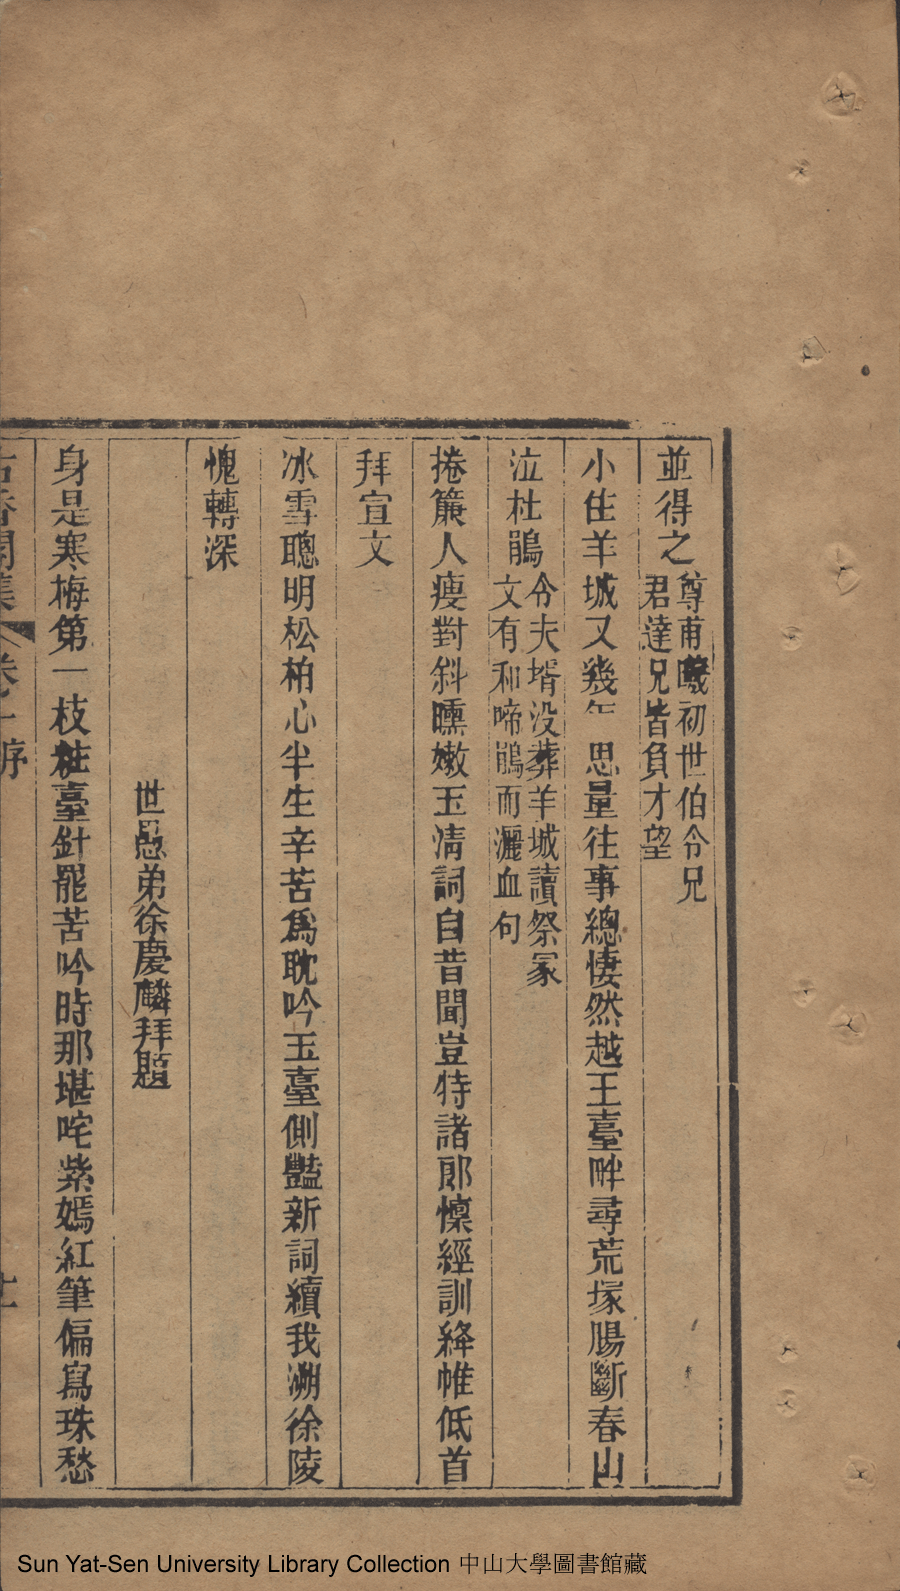 並得之尊甫曦初世伯令兄
君達兄皆負才望
小住羊城又幾年思量往事總悽然越王臺畔尋荒塚腸斷春山
泣杜鵑令夫壻没葬羊城讀祭冢
文有和啼鵑而灑血句
捲簾人瘦對斜曛嫩玉清詞自昔聞豈特諸郎懍經訓絳帷低首
拜宣文
冰雪聰明松柏心半生辛苦爲耽吟玉臺側豔新詞續我溯徐陵
愧轉深
世愚弟徐慶麟拜題
身是寒梅第一枝粧臺針罷苦吟時那堪咤紫嫣紅筆偏寫珠愁
古香閣集 卷一序 十一
Sun Yat-Sen University Library Collection 中山大學圖書館藏